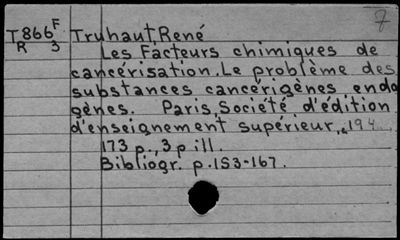 7
T866 F Truhaut, René
R 3
Les Facteurs chimiques de
cancérisation. Le problème des
substances cancérigènes endo
gènes. Paris, Société d'édition
d'enseignement supérieur, c194
173 p., 3 p ill.
Bibliogr. p. 153-167.